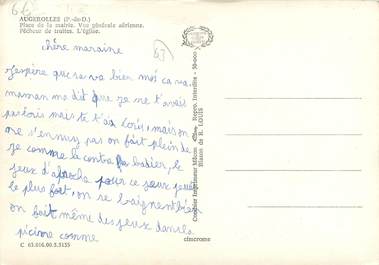 66
AUGEROLLES (P.-de-D.)
Place de la mairie. Vue générale aérienne.
Pêcheur de truites. L'église.
63
chère maraine
j'espère que sa va bien moi ça va
maman ma dit que je ne t'avais
pas écris mais te t'ai écris, mais on
ne s'ennuy pas on fait plein de
je comme la contre badier, le
jeux d'aproche pour ce jeux
le plus fort, on se baignent bien
on fait même des jeux dans la
picinne comme
C 63.016.00.3.5155
cimcrome
Combier Imprimeur Mâcon
Repro. Interdite - 50-000
Blason de R. LOUIS